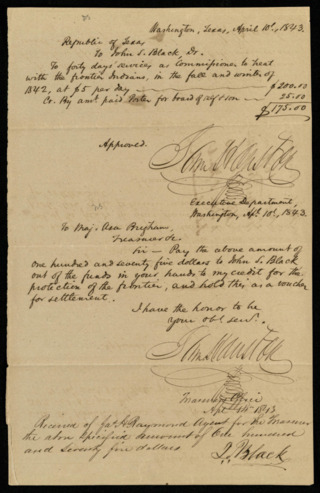 Washington, Texas, April 10th, 1843.
Republic of Texas
To John S. Black Dr.
To forty days services as Commissioner to treat
with the frontier Indians, in the fall and winter of
1842, at $5 per day $200.00
Cr. By amt. paid Porter for board of self & son 25.00
$175.00
Approved.
Sam Houston
Executive Department,
Washington, Apl. 10th, 1843.
To Maj. Asa Brigham,
Treasurer &c.
Sir — Pay the above amount of
one hundred and seventy five dollars to John S. Black
out of the funds in your hands to my credit for the
protection of the frontier, and hold this as a voucher
for settlement.
I have the honor to be
your obt. servt.
Sam Houston
Treasury Office
Apl 1843
Received of Jas. H. Raymond Agent for the Treasurer
the above specified amount of One hundred
and seventy five dollars
J. S. Black